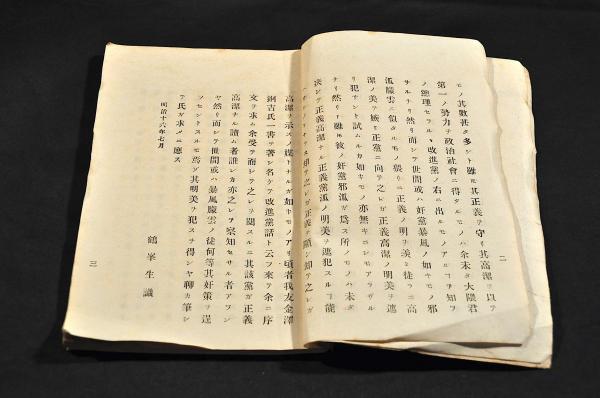 二
モノ其數甚タ多シト雖𪜈其正義ヲ守リ其高潔ヲ以テ
第一ノ勢力ヲ政治社會ニ得タルモノハ余未タ大隈君
ノ總理セラルヽ改進黨ノ右ニ出ルモノアルコヲ知ラ
サルナリ然リ而シテ世間或ハ奸黨暴風ノ如キモノ邪
濁朦雲ニ似タルモノ猥リニ正義ノ明ヲ羨ミ徒ラニ高
潔ノ美ヲ嫉ミ正黨ニ向テ之レガ正義高潔ノ明美ヲ遮
リ犯サント試ムルカ如キモノ亦無キニシモアラサル
ナリ然リト雖𪜈彼ノ奸黨邪濁ガ爲ス所ノモノハ未タ
决シテ正義高潔ナル正義黨ノ明美ヲ遮犯スルコ能
高潔ヲ示スノ媒トナルガ如キモノアリ頃者我友金澤
銅吉氏一書ヲ著シ名ケテ改進黨話ト云フ來テ余ニ序
文ヲ求ム余受テ而シテ之レヲ閲スルニ其該黨ガ正義
高潔ナル讀ム者誰レカ亦之レヲ察知セサル者アラン
ヤ然リ而シテ世間或ハ暴風朦雲ノ徒何等其奸策ヲ逞
ノセントスルモ焉ソ其明美ヲ犯スヲ得シヤ聊カ筆シ
テ氏ガ求メニ應ス
明治十六年七月
鶴峯生識
三